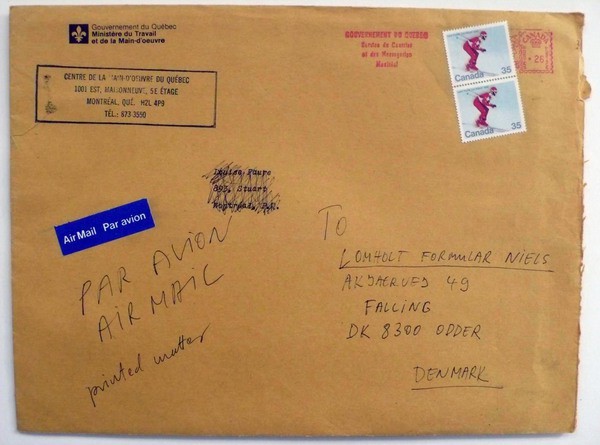 Gouvernement du Québec
Ministère du Travail
et de la Main-d'oeuvre
CENTRE DE LA MAIN-D'OEUVRE DU QUÉBEC
1001 EST, MAISONNEUVE, 5E ÉTAGE
MONTRÉAL, QUÉ. H2L 4P9
TÉL.: 673 3550
GOUVERNEMENT DU QUEBEC
Bureau du Courrier
et des Messageries
Montréal
CANADA
26
Canada 35
Canada 35
Louise Faure
893, Stuart
Montréal, P.Q.
Air Mail Par avion
PAR AVION
AIR MAIL
printed matter
TO
LOMHOLT FORMULAR NIELS
AKJAERVEJ 49
FALLING
DK 8300 ODDER
DENMARK